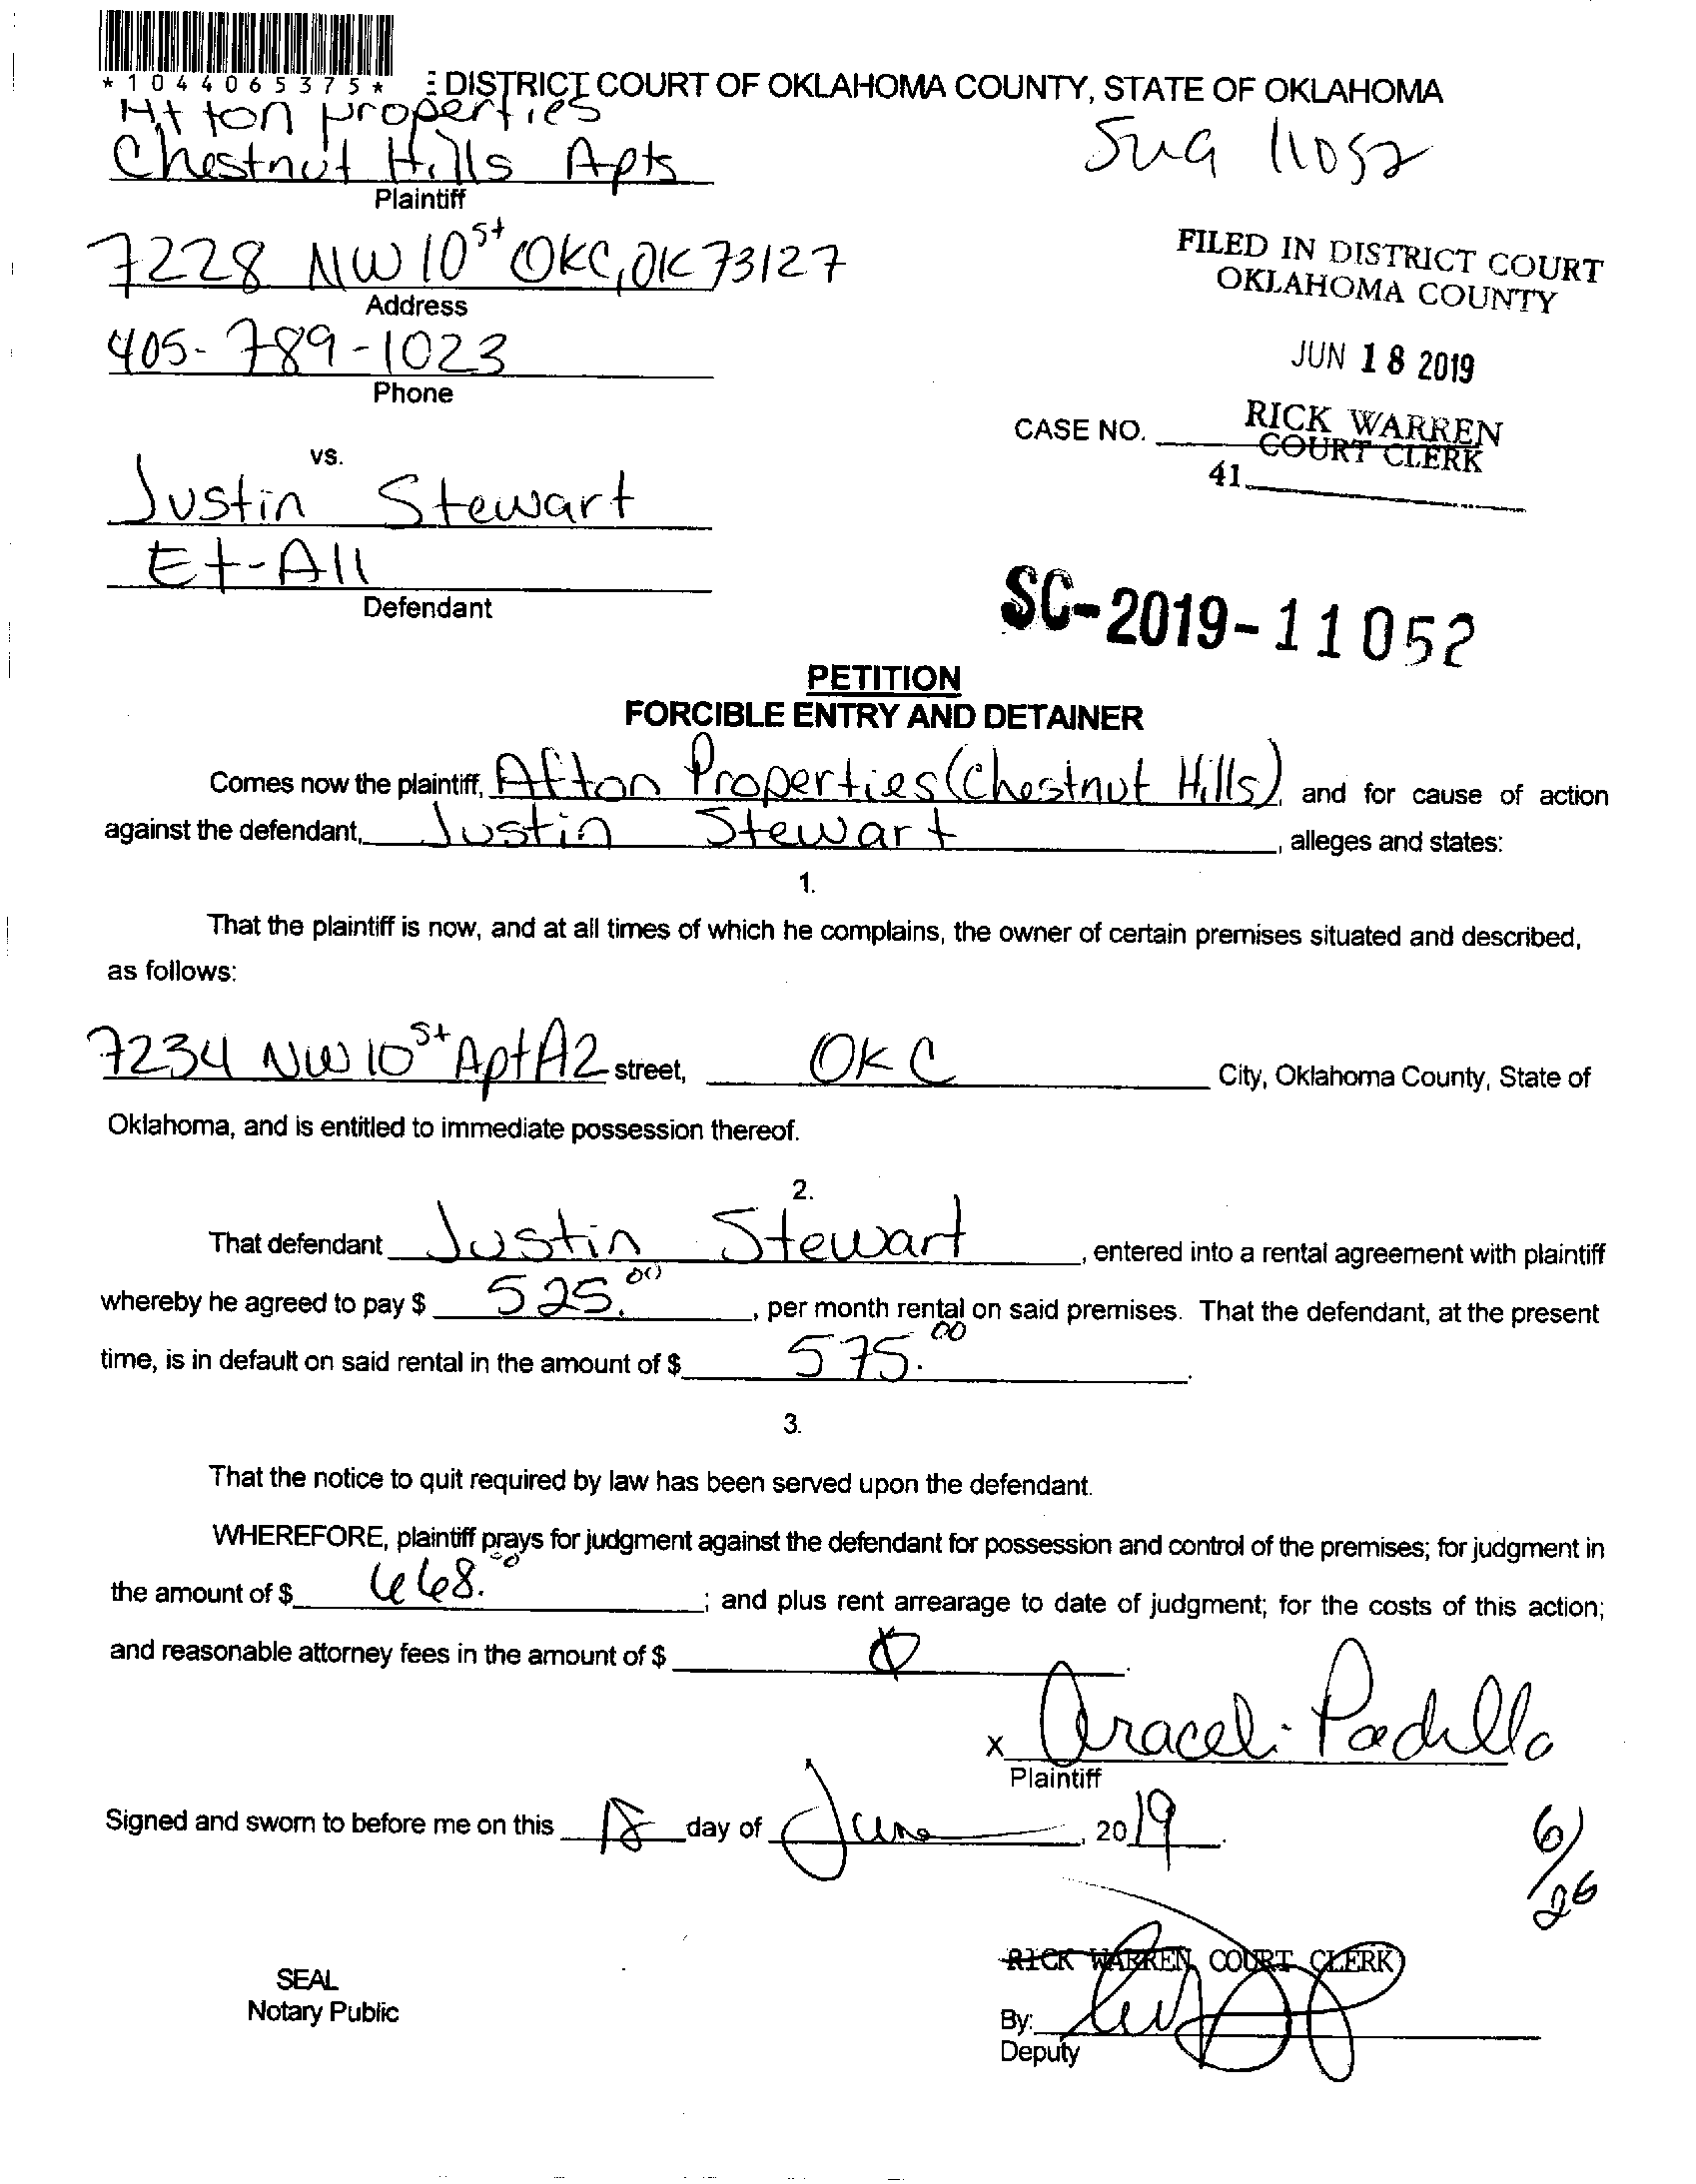 *1044065375*
DISTRICT COURT OF OKLAHOMA COUNTY, STATE OF OKLAHOMA
Afton properties
Chestnut Hills Apts
Plaintiff
11052
7228 NW 10st OKC, OK 73127
Address
405-789-1023
Phone
FILED IN DISTRICT COURT
OKLAHOMA COUNTY
JUN 18 2019
RICK WARREN
COURT CLERK
41
CASE NO.
vs.
Justin Stewart
Et-All
Defendant
SC-2019-11052
PETITION
FORCIBLE ENTRY AND DETAINER
Comes now the plaintiff, Afton Properties (Chestnut Hills), and for cause of action
against the defendant, Justin Stewart, alleges and states:
1.
That the plaintiff is now, and at all times of which he complains, the owner of certain premises situated and described,
as follows:
7234 NW 10st Apt A2 street, OKC City, Oklahoma County, State of
Oklahoma, and is entitled to immediate possession thereof.
2.
That defendant Justin Stewart, entered into a rental agreement with plaintiff
whereby he agreed to pay $ 525.00, per month rental on said premises. That the defendant, at the present
time, is in default on said rental in the amount of $ 575.00.
3.
That the notice to quit required by law has been served upon the defendant.
WHEREFORE, plaintiff prays for judgment against the defendant for possession and control of the premises; for judgment in
the amount of $ 668.00; and plus rent arrearage to date of judgment; for the costs of this action;
and reasonable attorney fees in the amount of $
x Araceli Padilla
Plaintiff
Signed and sworn to before me on this 18 day of June, 2019.
6/26
RICK WARREN, COURT CLERK
SEAL
Notary Public
By:
Deputy